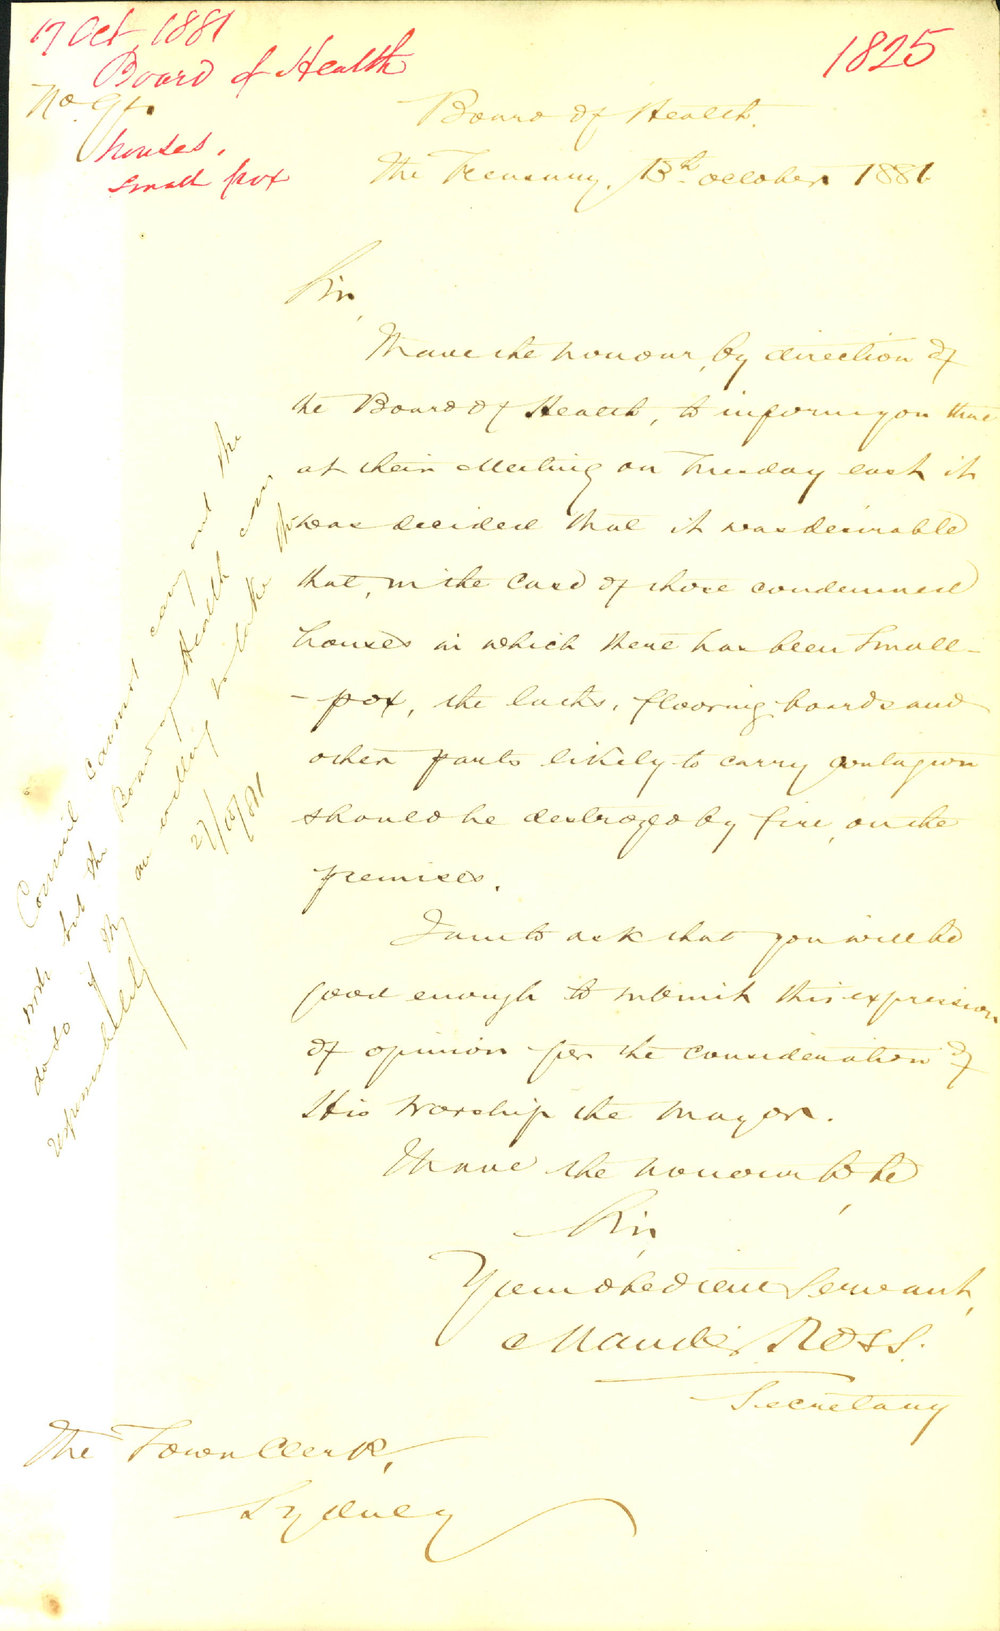 17 Oct, 1881
Board of Health
1825
No. 97.
houses.
small pox
Board of Health.
The Treasury, 13th October 1881.
Sir,
I have the honour, by direction of
the Board of Health, to inform you that
at their Meeting on Tuesday last it
was decided that it was desirable
that, in the case of those condemned
houses in which there has been Small-
-pox, the laths, flooring boards and
other parts likely to carry contagion
should be destroyed by fire, on the
premises.
I am to ask that you will be
good enough to submit this expression
of opinion for the consideration of
His Worship the Mayor.
I have the honour to be,
Sir,
Your obedient Servant,
Ross.
Secretary
The Town Clerk,
Sydney
Council cannot carry out the
work but the Board of Health can
do so if they are willing to take the
responsibility
27/10/81